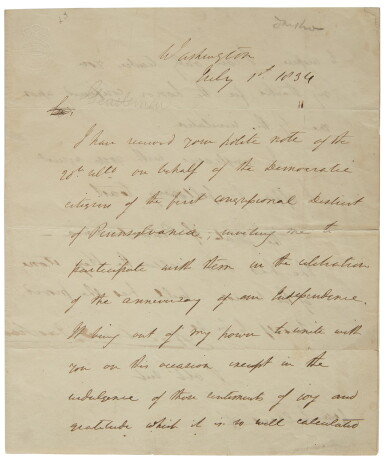 Washington
July 1st 1834
Sir,
I have received your polite note of the
20th ulto on behalf of the Democratic
citizens of the first congressional District
of Pennsylvania, inviting me to
participate with them in the celebration
of the anniversary of our Independence.
It being out of my power to unite with
you on this occasion except in the
indulgence of those sentiments of joy and
gratitude which it is so well calculated